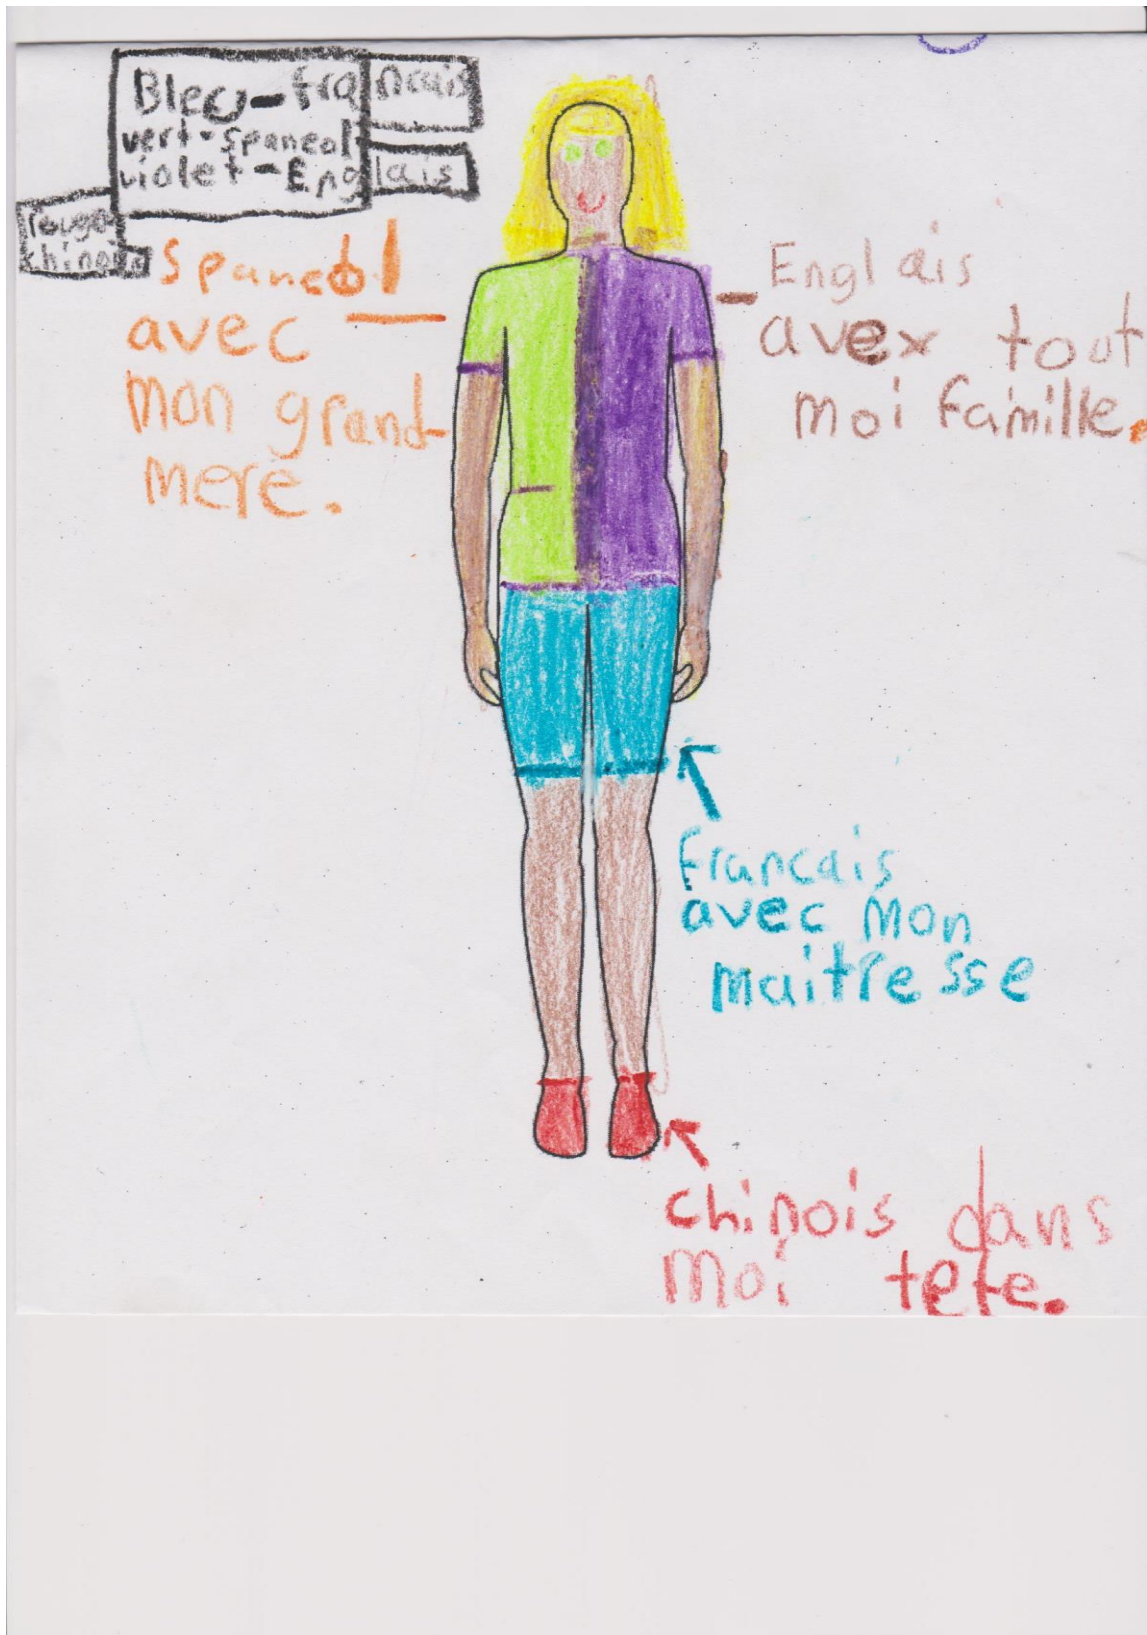 Bleu-français
vert-spaneol
violet-Englais
rouge
chinois
Spaneol
avec
mon grand
mere.
Englais
avex tout
moi famille.
francais
avec mon
maitresse
chinois dans
moi tete.